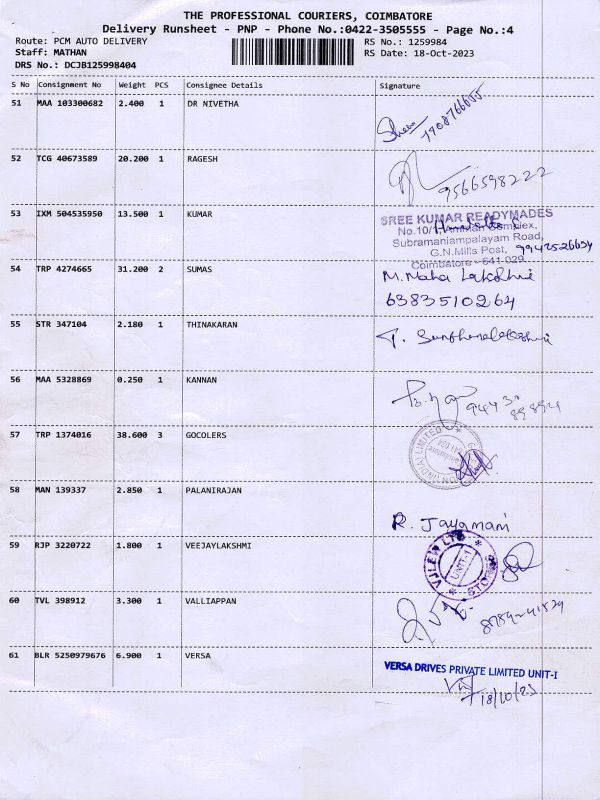 THE PROFESSIONAL COURIERS, COIMBATORE
Delivery Runsheet - PNP - Phone No.:0422-3505555 - Page No.:4
Route: PCM AUTO DELIVERY RS No.: 1259984
Staff: MATHAN RS Date: 18-Oct-2023
DRS No.: DCJB125998404
S No Consignment No Weight PCS Consignee Details Signature
51 MAA 103300682 2.400 1 DR NIVETHA
7908766655
52 TCG 40673589 20.200 1 RAGESH
9566598222
53 IXM 504535950 13.500 1 KUMAR
SREE KUMAR READYMADES
No.10/1, Complex,
Subramaniampalayam Road,
G.N.Mills Post, 9942526654
Coimbatore - 641 029.
54 TRP 4274665 31.200 2 SUMAS M.Maha Lakshmi
6383510264
55 STR 347104 2.180 1 THINAKARAN
56 MAA 5328869 0.250 1 KANNAN
57 TRP 1374016 38.600 3 GOCOLERS
58 MAN 139337 2.850 1 PALANIRAJAN R. Jayamani
59 RJP 3220722 1.800 1 VEEJAYLAKSHMI
UNIT-1
STORES
60 TVL 398912 3.300 1 VALLIAPPAN
61 BLR 5250979676 6.900 1 VERSA VERSA DRIVES PRIVATE LIMITED UNIT-I
18/10/23